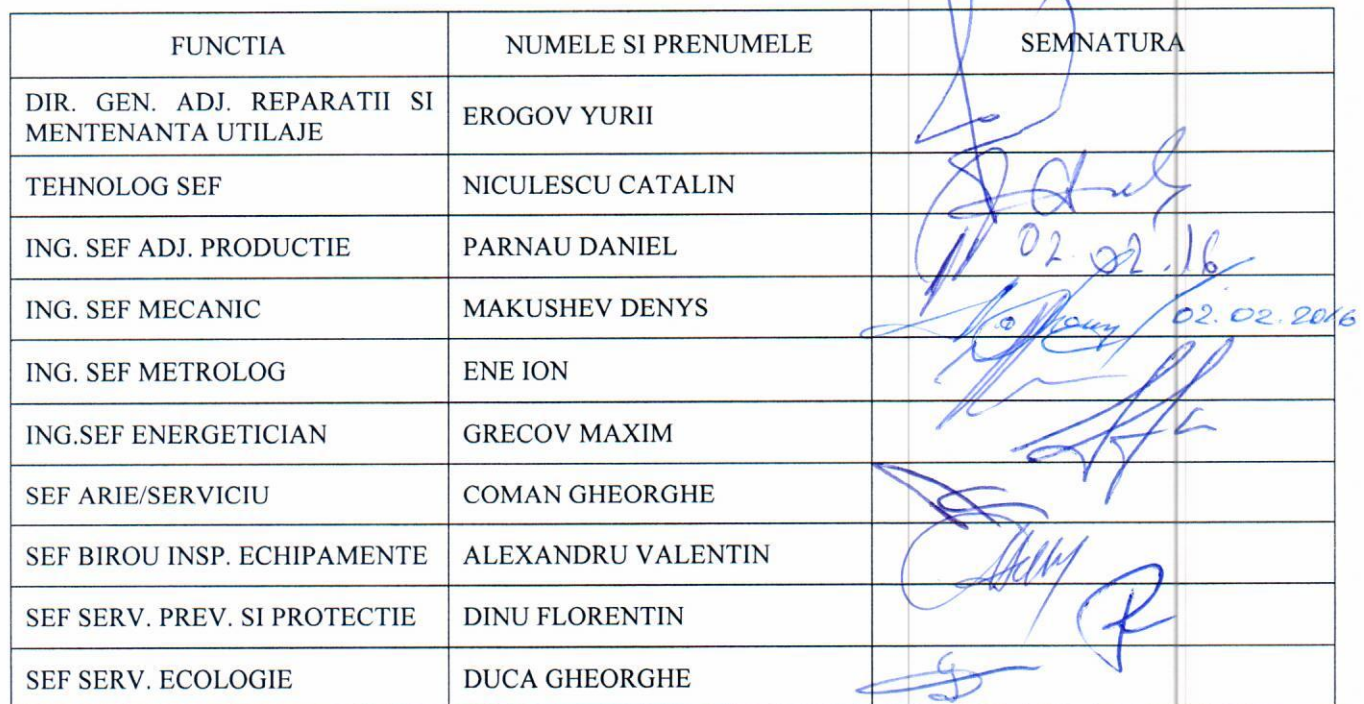 FUNCTIA NUMELE SI PRENUMELE SEMNATURA
DIR. GEN. ADJ. REPARATII SI
MENTENANTA UTILAJE EROGOV YURII
TEHNOLOG SEF NICULESCU CATALIN
ING. SEF ADJ. PRODUCTIE PARNAU DANIEL 02.02.16
ING. SEF MECANIC MAKUSHEV DENYS 02.02.2016
ING. SEF METROLOG ENE ION
ING.SEF ENERGETICIAN GRECOV MAXIM
SEF ARIE/SERVICIU COMAN GHEORGHE
SEF BIROU INSP. ECHIPAMENTE ALEXANDRU VALENTIN
SEF SERV. PREV. SI PROTECTIE DINU FLORENTIN
SEF SERV. ECOLOGIE DUCA GHEORGHE